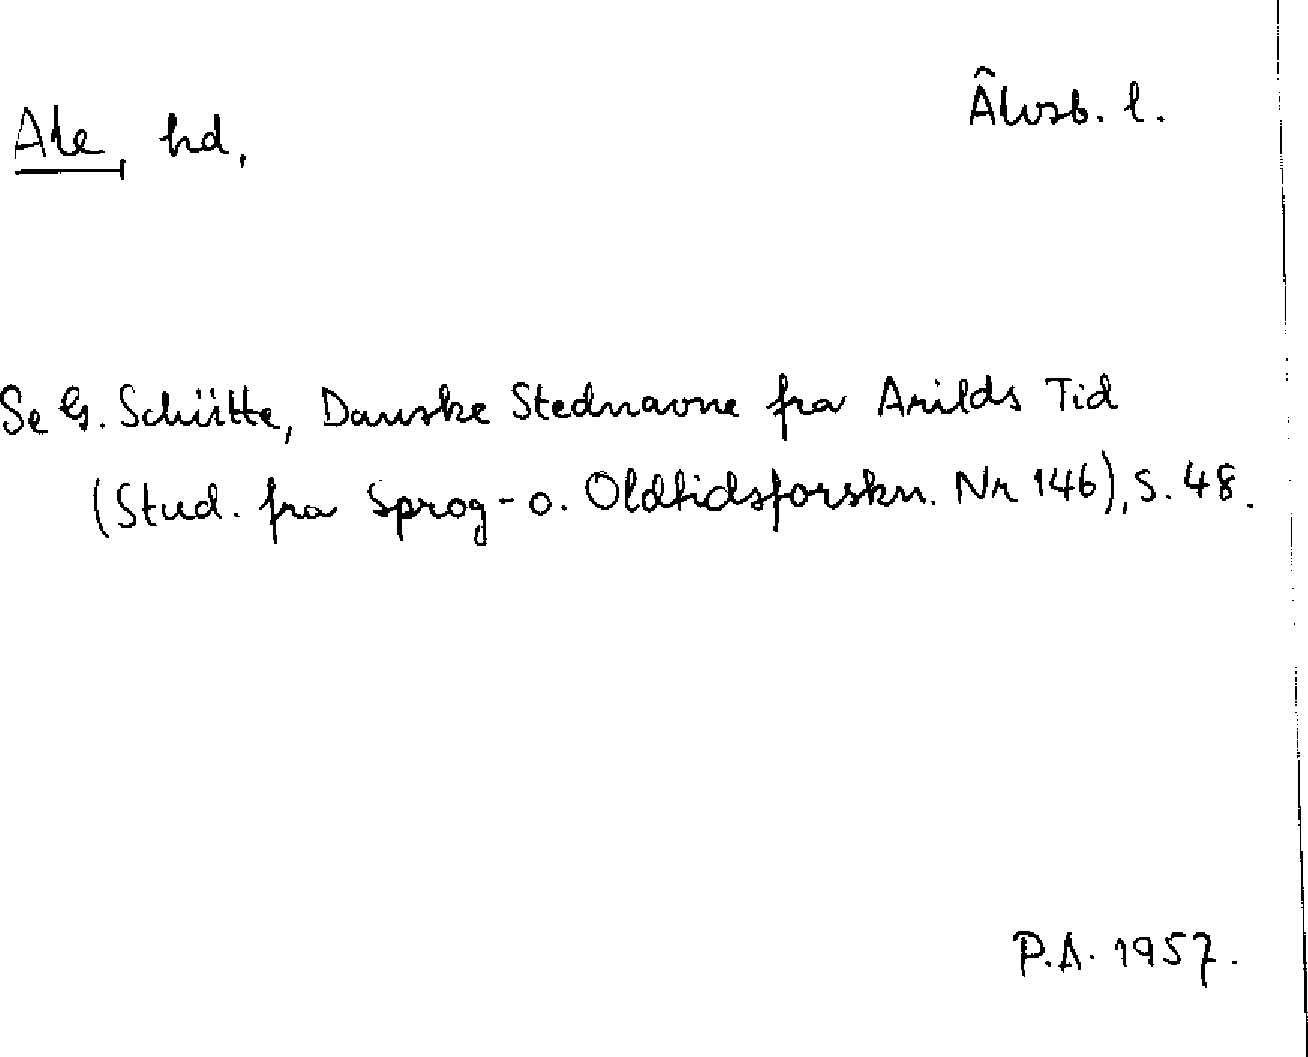 Ale, hd,
Älvsb. l.
Se G. Schütte, Danske Stednavne fra Arilds Tid
(Stud. fra Sprog- o. Oldtidsforskn. Nr 146), S. 48.
P.A. 1957.